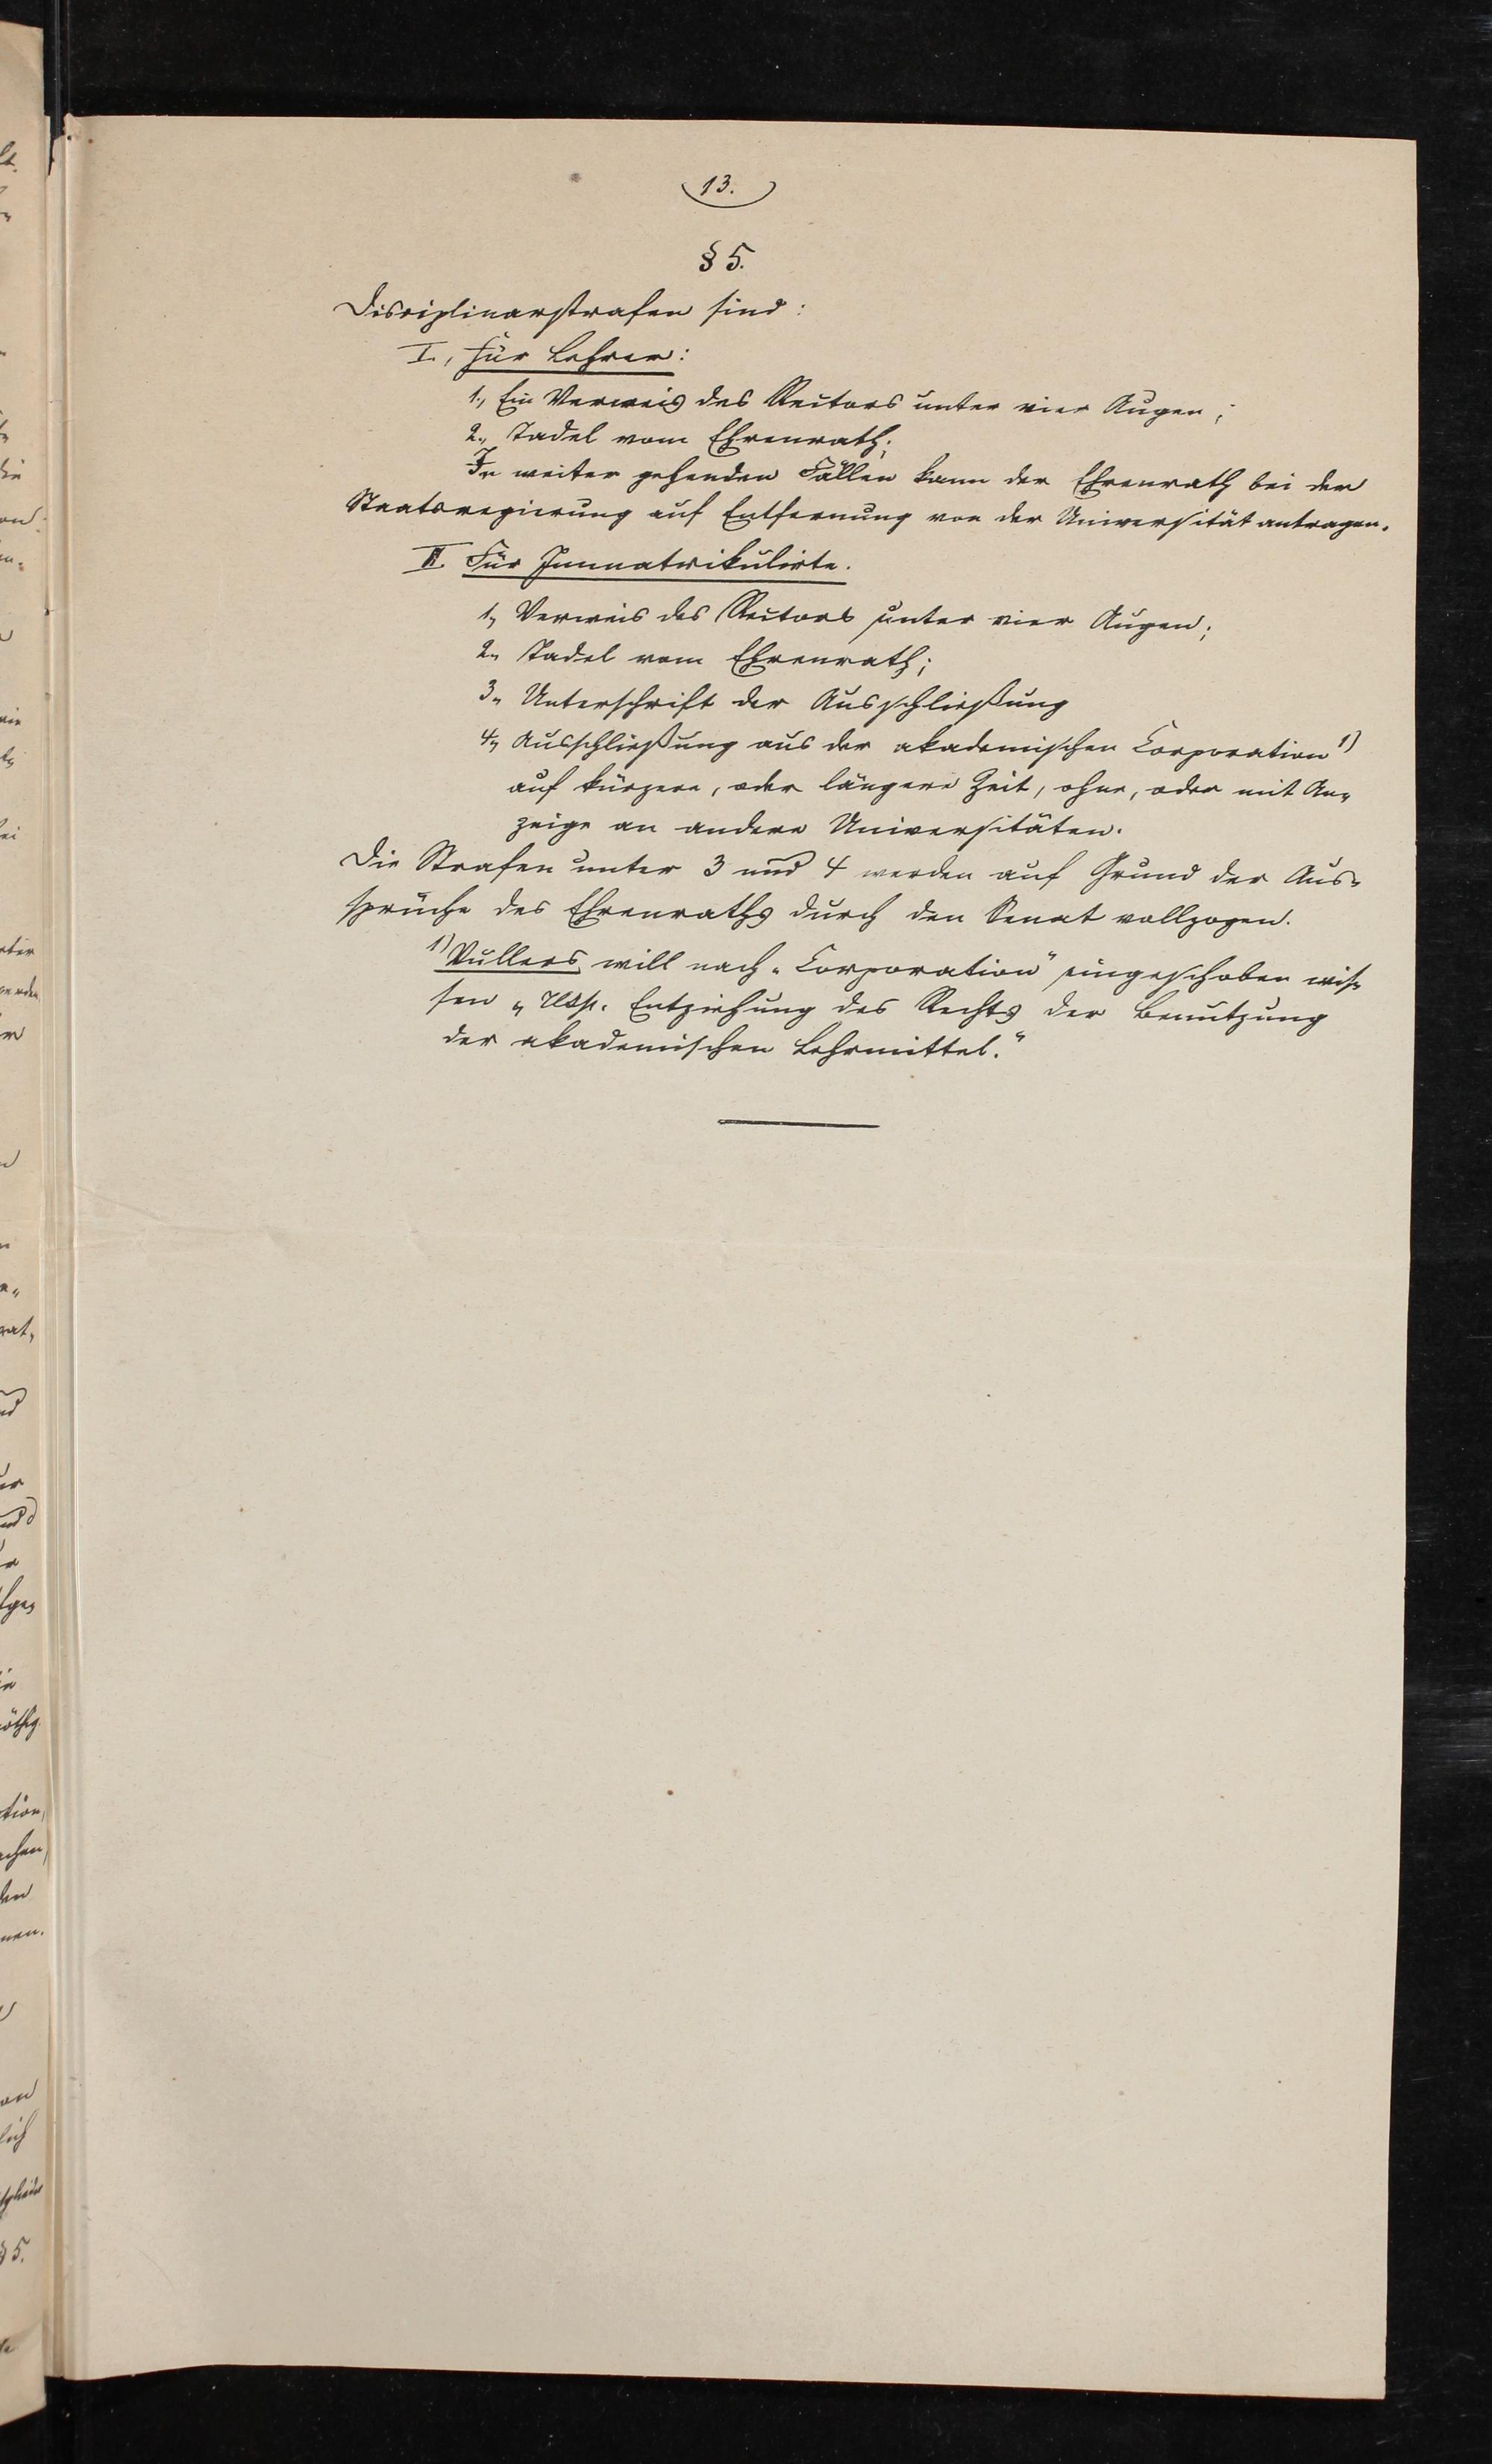 13.
§ 5.
Disciplinarstrafen sind:
I., Für Lehrer:
1., Ein Verweis des Rectors unter vier Augen;
2., Tadel vom Ehrenrath;
In weiter gehenden Fällen kann der Ehrenrath bei der
Staatsregierung auf Entfernung von der Universität antragen.
II. Für Immatrikulirte.
1., Verweis des Rectors unter vier Augen;
2., Tadel vom Ehrenrath;
3., Unterschrift der Ausschließung
4., Ausschließung aus der akademischen Corporation 1)
auf kürzere, oder längere Zeit, ohne, oder mit An-
zeige an andere Universitäten.
Die Strafen unter 3 und 4 werden auf Grund der Aus-
sprüche des Ehrenraths durch den Senat vollzogen.
1) Vullers will nach „Corporation" eingeschoben wis-
sen „ Entziehung des Rechts der Benutzung
der akademischen Lehrmittel."